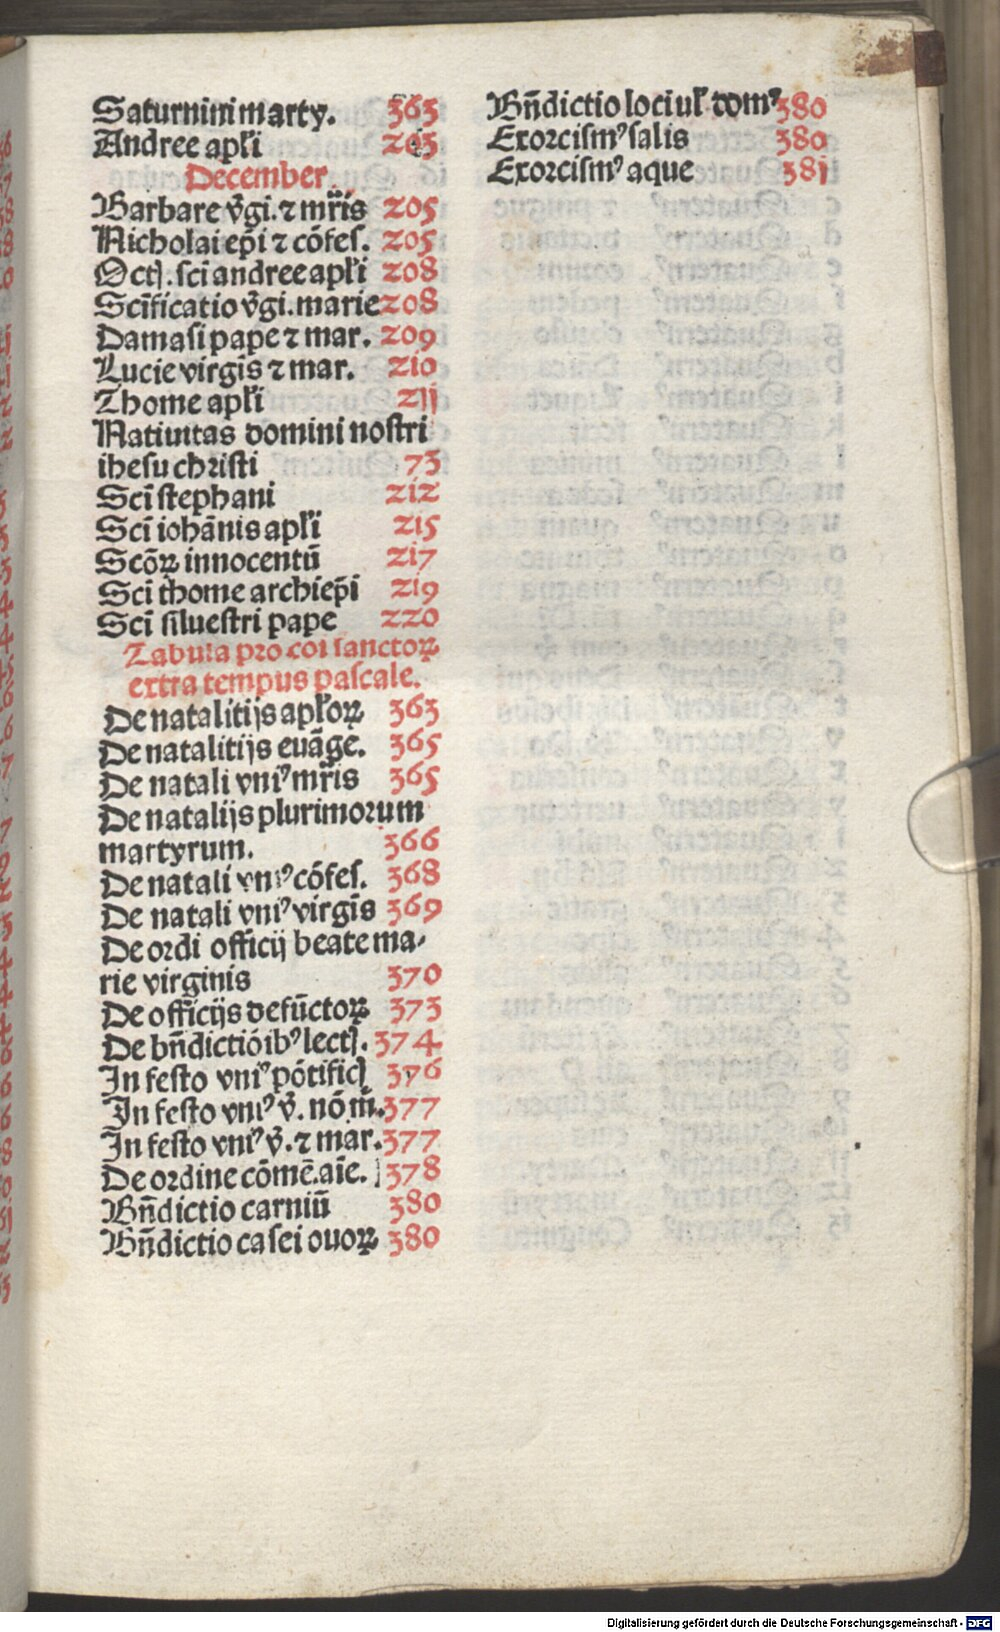 Saturnini marty. 363
Andree apľi 203
December
Barbare v̄gi. ⁊ mr̄is 205
Nicholai ep̄i ⁊ cōfes. 205
Octꝭ. sci andree apľi 208
Scīficatio v̄gi. marie 208
Damasi pape ⁊ mar. 209
Lucie virgis ⁊ mar. 210
Thome apľi 211
Natiuitas domini nostri
ihesu christi 73
Scī stephani 212
Scī iohānis apľi 215
Scōꝝ innocentū 217
Sci thome archiep̄i 219
Scī siluestri pape 220
Tabula pro coi sanctoꝝ
extra tempus pascale.
De natalitijs apľoꝝ 363
De natalitijs euāge. 365
De natali vniꝰ mr̄is 365
De natalijs plurimorum
martyrum. 366
De natali vniꝰ cōfes. 368
De natali vniꝰ virgis 369
De ordi officij beate ma-
rie virginis 370
De officijs defūctoꝝ 373
De bn̄dictiōibꝰ lectꝭ. 374
In festo vniꝰ pōtificꝭ 376
In festo vniꝰ v̄. nō m̄. 377
In festo vniꝰ v̄. ⁊ mar. 377
De ordine cōmē. aīe. 378
Bn̄dictio carniū 380
Bn̄dictio casei ouoꝝ 380
Bn̄dictio loci uľ domꝰ 380
Exorcismꝰ salis 380
Exorcismꝰ aque 381
Digitalisierung gefördert durch die Deutsche Forschungsgemeinschaft - DFG